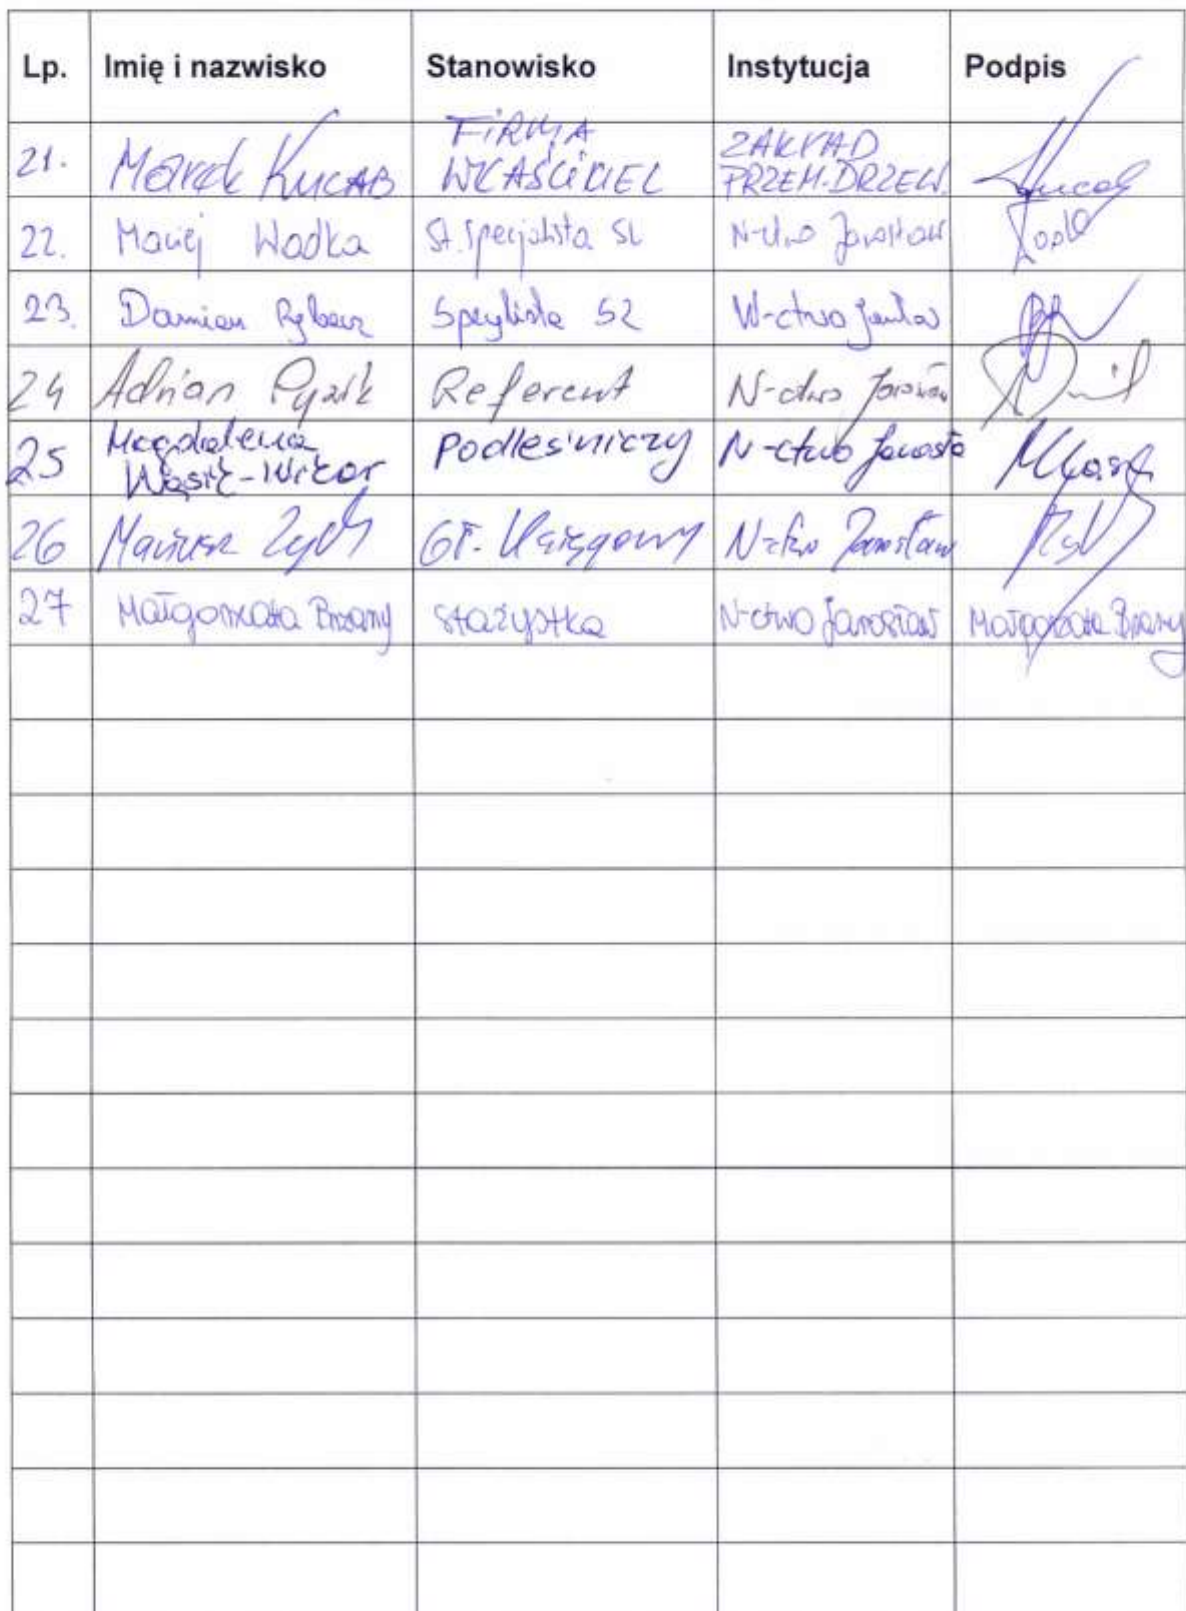 Lp. Imię i nazwisko Stanowisko Instytucja Podpis
21. Marek Kucab FIRMA WŁAŚCICIEL ZAKŁAD PRZEM-DRZEW.
22. Maciej Wodka St. specjalista SL N-ctwo Jarosław
23. Damian Specjalista N-ctwo
24 Adrian Pyzik Referent N-ctwo
25 Magdalena Wąsik-Wikar Podleśniczy N-ctwo
26 Mariusz Zych Gł. Księgowy N-ctwo Jarosław
27 Małgorzata Brzany stażystka N-ctwo Jarosław Małgorzata Brzany